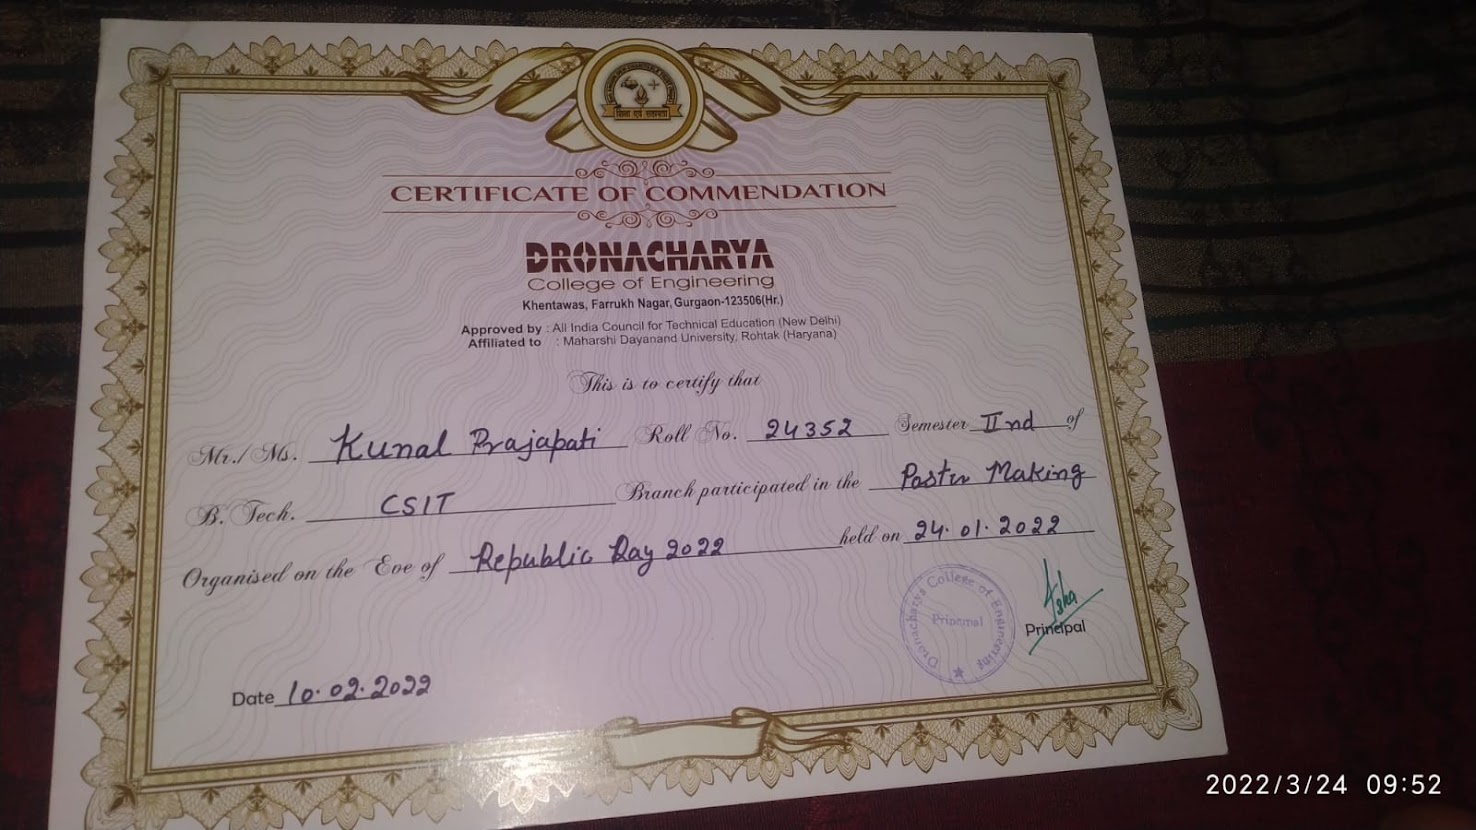 शिक्षा एवं सहायता
CERTIFICATE OF COMMENDATION
DRONACHARYA
College of Engineering
Khentawas, Farrukh Nagar, Gurgaon-123506(Hr.)
Approved by : All India Council for Technical Education (New Delhi)
Affiliated to : Maharshi Dayanand University, Rohtak (Haryana)
This is to certify that
Mr./Ms. Kunal Prajapati Roll No. 24352 Semester IInd of
B. Tech. CSIT Branch participated in the Poster Making
Organised on the Eve of Republic Day 2022 held on 24.01.2022
Dronacharya College of Engineering
Principal
Asha
Principal
Date 10.02.2022
2022/3/24 09:52